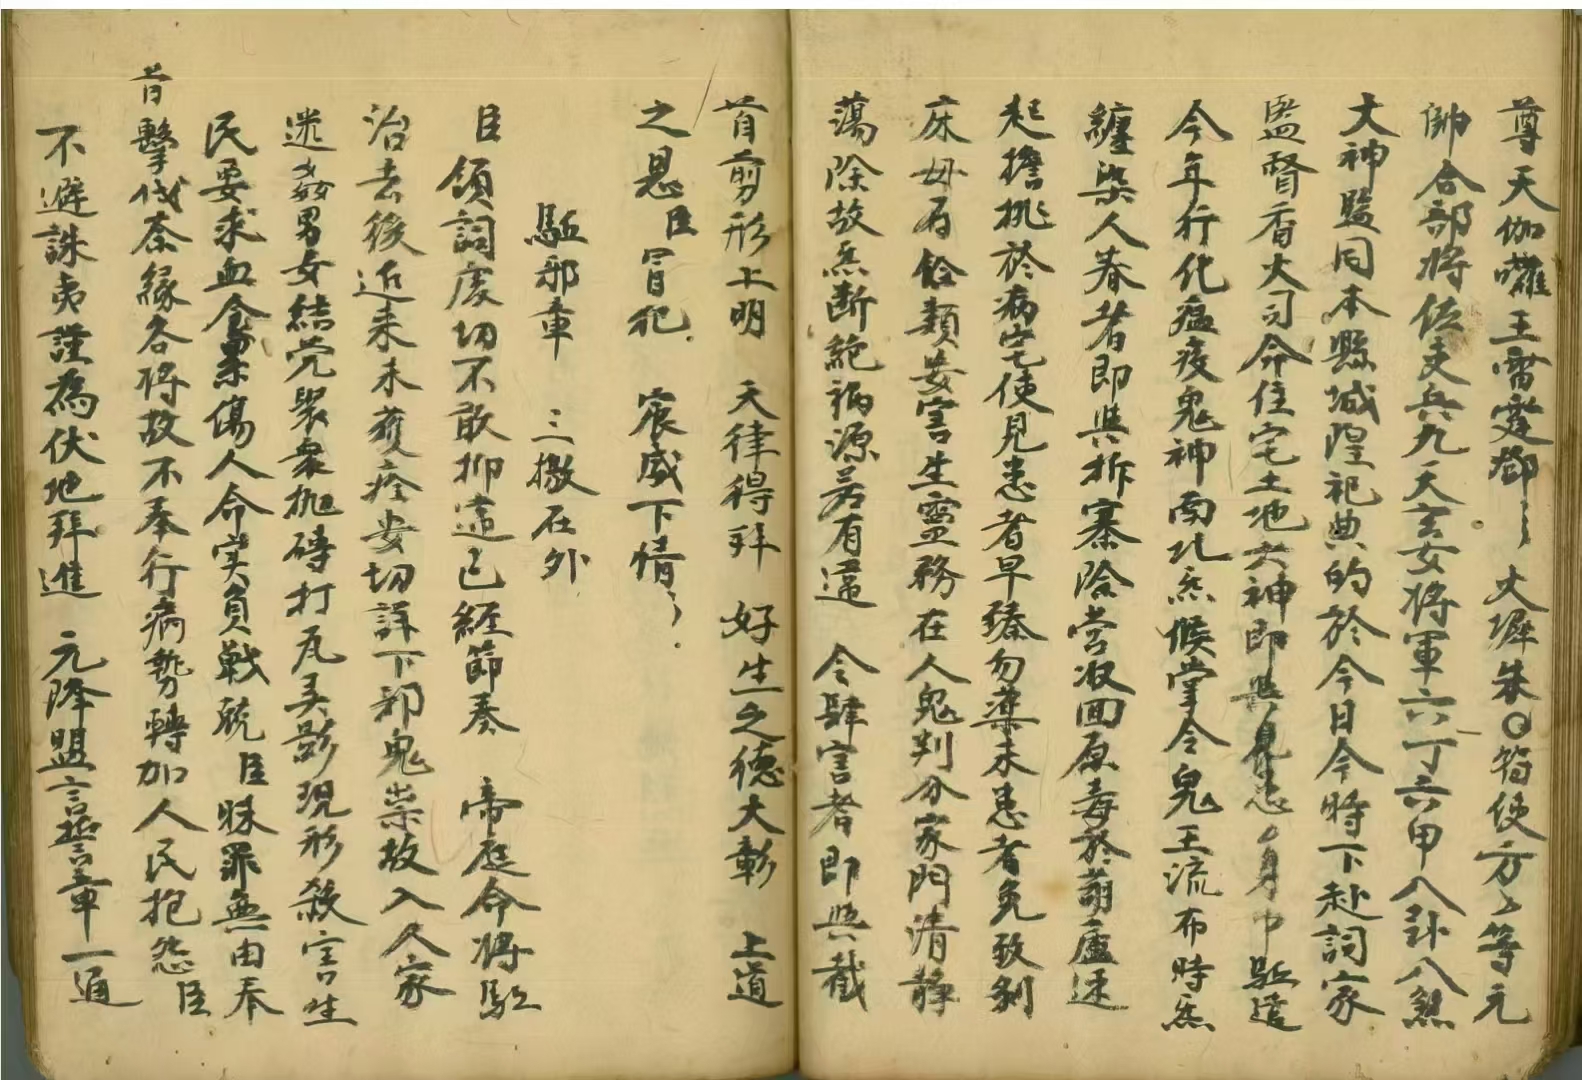 尊天伽囉王雷霆鄧〻　大墀朱〇符使方〻等元
帥合部將佐吏兵九天玄女將軍六丁六甲八卦八煞
大神監同本縣城隍祀典的於今日今時下赴詞家
監督香火司命住宅土地六神即與見患身中駈遣
今年行化瘟疫鬼神南北炁候掌令鬼王流布時炁
纏染人眷者即與拆寨除营收囬原毒於葫蘆速
起擔挑於病宅使見患者早臻勿藥未患者免致剝
床毋有餘類妄害生靈務在人鬼判分家門清静
蕩除故炁断絶禍源若有違　令肆害者即與截
首剪形上明　天律得拜　好生之德大彰　上道
之恩臣冒犯　宸威下情〻
駈邪章　三撒在外
臣領詞虔切不敢抑違已經節奏　帝庭命將駈
治去後近来未獲痊安切詳下邪鬼祟故入人家
迷姦男女結党聚衆抛磚打瓦弄影現形殺害生
民要求血食累傷人命实負戰兢臣昧罪無由奉
旨擊伐奈緣各将故不奉行病勢轉加人民抱怨臣
不避誅夷謹為伏地拜進　元降盟言誓章一通